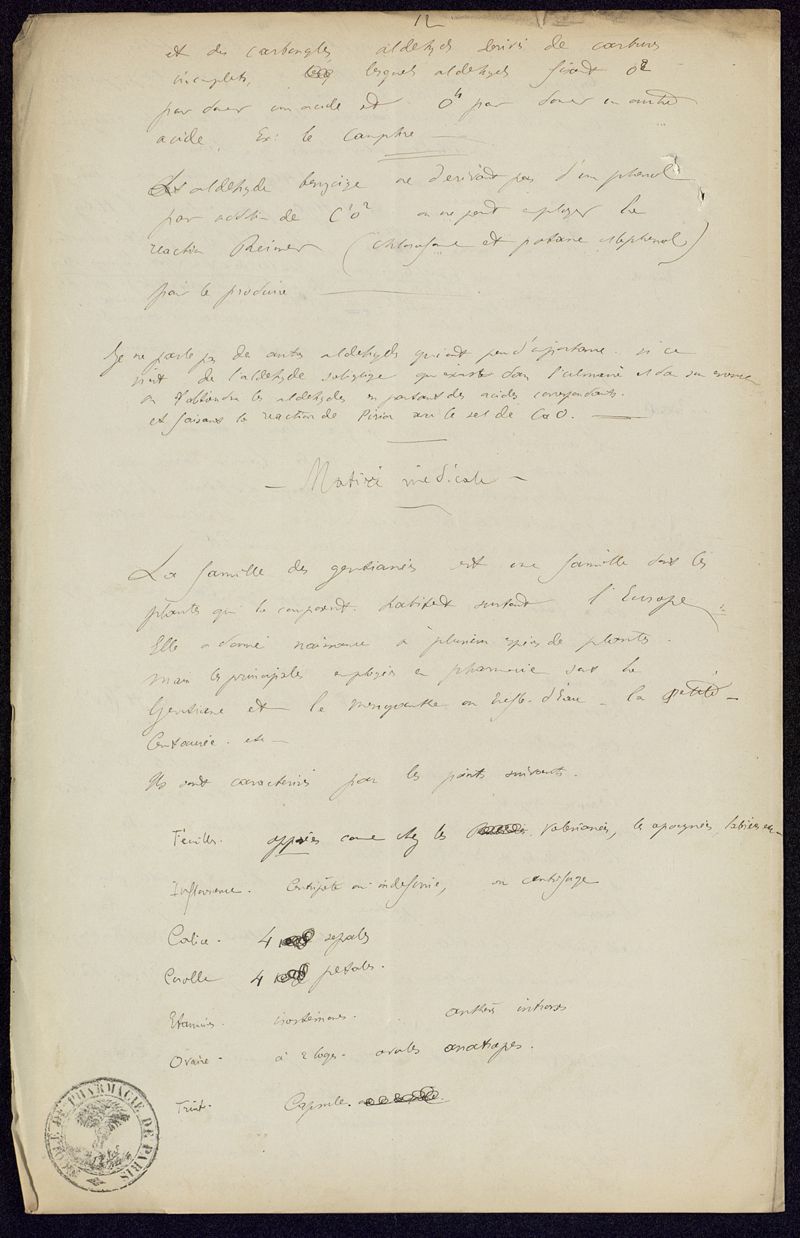 12
et des carbonyles aldehydes derivés de carbures
incomplets, lesquels aldehydes fixent O2
pour donner un acide et O4 pour donner un autre
acide. Ex: le camphre
aldehyde benzoique ne derivant pas d'un phenol
par addition de C2O2 on ne peut employer la
reaction Reimer (chloroforme et potasse phenol)
pour le produire
Je ne parle pas des autres aldehydes qui ont peu d'importance. si ce
n'est de l'aldehyde salicylique qui existe dans l'ulmaire et dans son essence
on obtiendra les aldehydes en partant des acides correspondants.
et faisant la reaction de Piria sur le sel de CaO.
- Matière médicale -
La famille des gentianées est une famille dont les
plantes qui la composent habitent surtout l'Europe
Elle a donné naissance à plusieurs espèces de plantes.
mais les principales employées en pharmacie sont la
Gentiane et le Menyanthe ou trefle d'Eau - la petite -
Centaurée. etc -
Ils sont caracterisés par les points suivants.
Feuilles. opposées comme chez les Valerianées, les apocynées, labiées etc -
Inflorescence. Centripète ou indefinie, ou centrifuge
Calice. 4 sepales
Corolle 4 petales.
Etamines. isostemones. anthères introrses
Ovaire. à 2 loges. ovules anatropes.
Fruit. Capsule.
ECOLE DE PHARMACIE DE PARIS